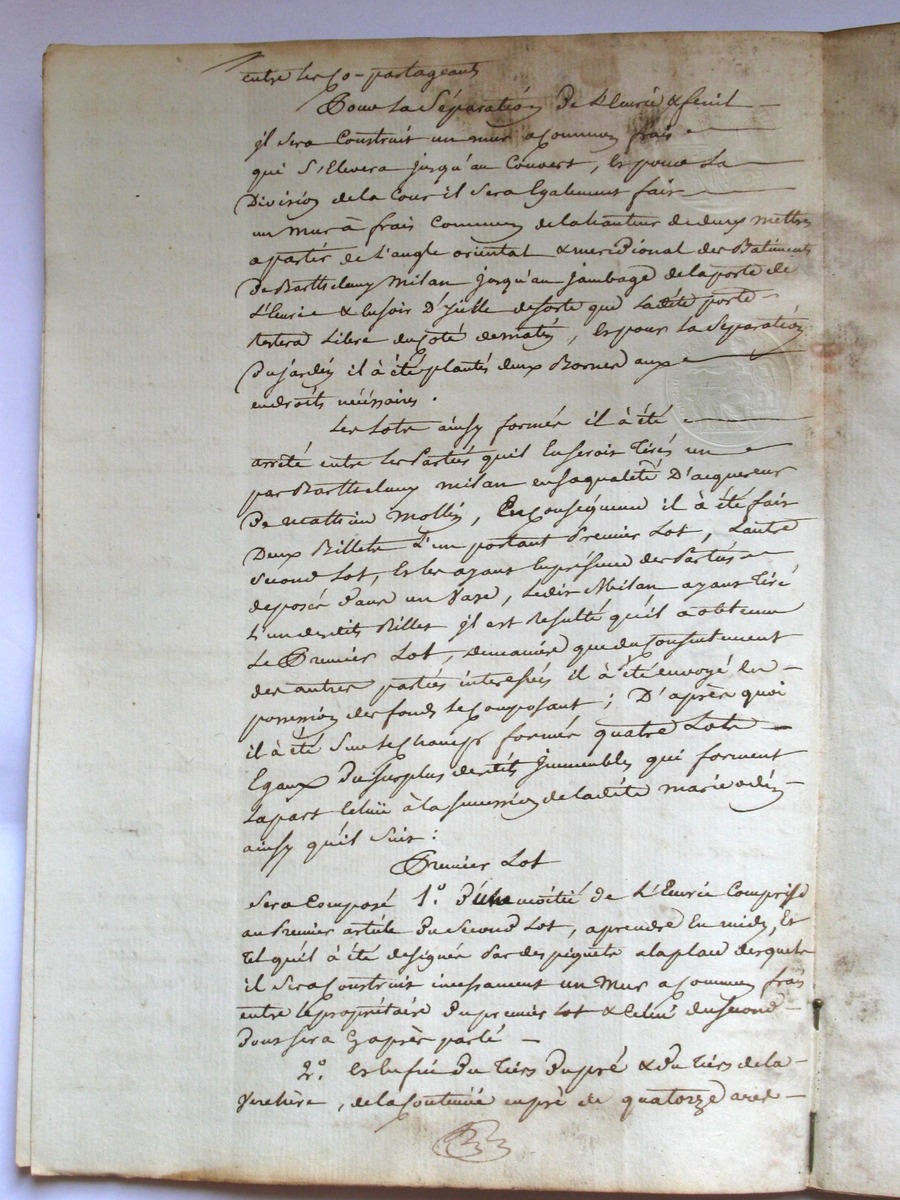 entre les co-partageants
Pour la Séparation De L'Ecurie & fenil
il sera Construit un mur a commun frais
qui S'Elevera jusqu'au Couvert, Et pour La
Division de la Cour il Sera Egalement fait
un Mur à frais Commun de la hauteur de deux mettres
a partir de L'angle oriental & meridional des Batiments
De Barthelemy Milan jusqu'au jambage de la porte de
L'Ecurie & du soir D'ycelle desorte que Ladite porte
restera Libre du Coté de matin, Et pour La Separation
Du jardin il à été plantés deux Bornes aux
endroits nécéssaires.
Les Lots ainsy formés il à été
arrêté entre les Parties qu'il En seroit Tirés un
par Barthelemy Milan en sa qualité D'acquereur
De Mathieu Mollin, En Conséquence il à été fait
Deux Billets L'un portant Premier Lot, Lautre
Second Lot, Et les ayant En présence des Parties
deposés dans un Vase, Ledit Milan ayant Tiré
L'un desdits Billet il est Resulté qu'il a obtenu
Le Premier Lot, de maniere que du Consentement
des autres parties interessées il à été envoyé en
possession des fonds le Composant; D'après quoi
il à été Sur le Champs formés quatre Lots
Egaux Du Surplus desdits Immeubles qui forment
la part Echüe à la Succession de ladite marie
ainsy qu'il Suit:
Premier Lot
Sera Composé 1º. D'une moitié de L'Ecurie Comprise
au Premier article Du Second Lot, a prendre En midy, Et
tel qu'il à été designée Par des piquets a la place desquels
il Sera Construit incessament un Mur a Commun frais
entre le propriétaire Du premier Lot & Celui du Second
Dont Sera Cy après parlé
2º. Et Enfin Du Tiers Du pré & Du Tiers de la
Verchère, de la Contenüe en pré de quatorze ares